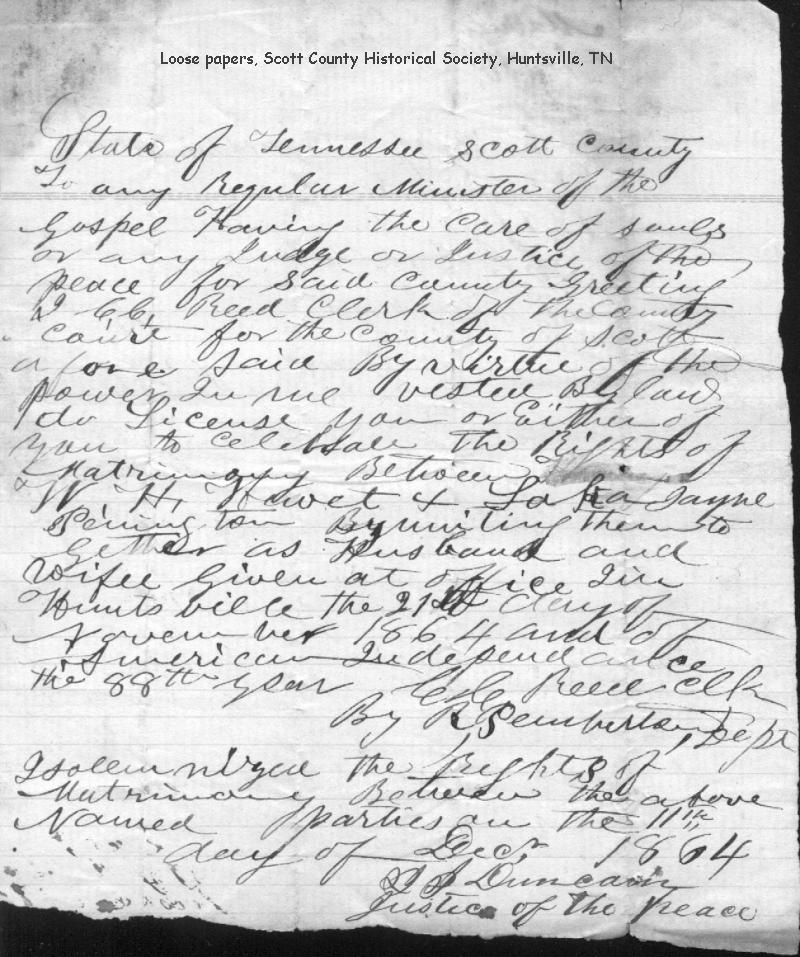 Loose papers, Scott County Historical Society, Huntsville, TN
State of Tennessee Scott County
To any Regular Minister of the
Gospel Having the Care of souls
or any Judge or Justice of the
peace for said County Greeting
I CC, Reed Clerk of the County
Court for the County of Scott
a fore said By virtue of the
power In me vested By law
do License you or Either of
you to celebrate the Rights of
Matrimony Between
W, H, Hewet & Jayne
Penington By uniting them to
Gether as Husband and
Wifee Given at office Iin
Hunts ville the 21st day of
November 1864 and of
American Independance
the 88th year CC Reed Clk
By R Pemberton, Dept
I solem nized the Rights of
Matrimony Between the above
Named parties on the 11th
day of Decr 1864
Duncan
Justice of the Peace